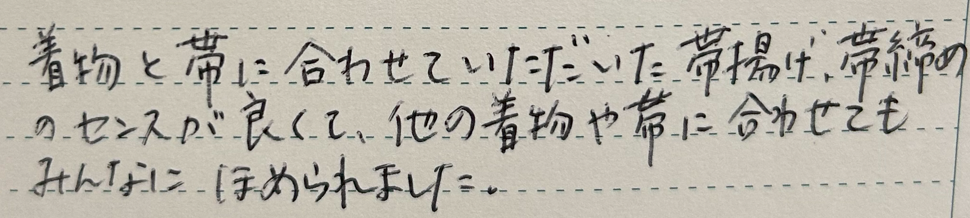 着物と帯に合わせていただいた帯揚げ、帯締め
のセンスが良くて、他の着物や帯に合わせても
みんなにほめられました。